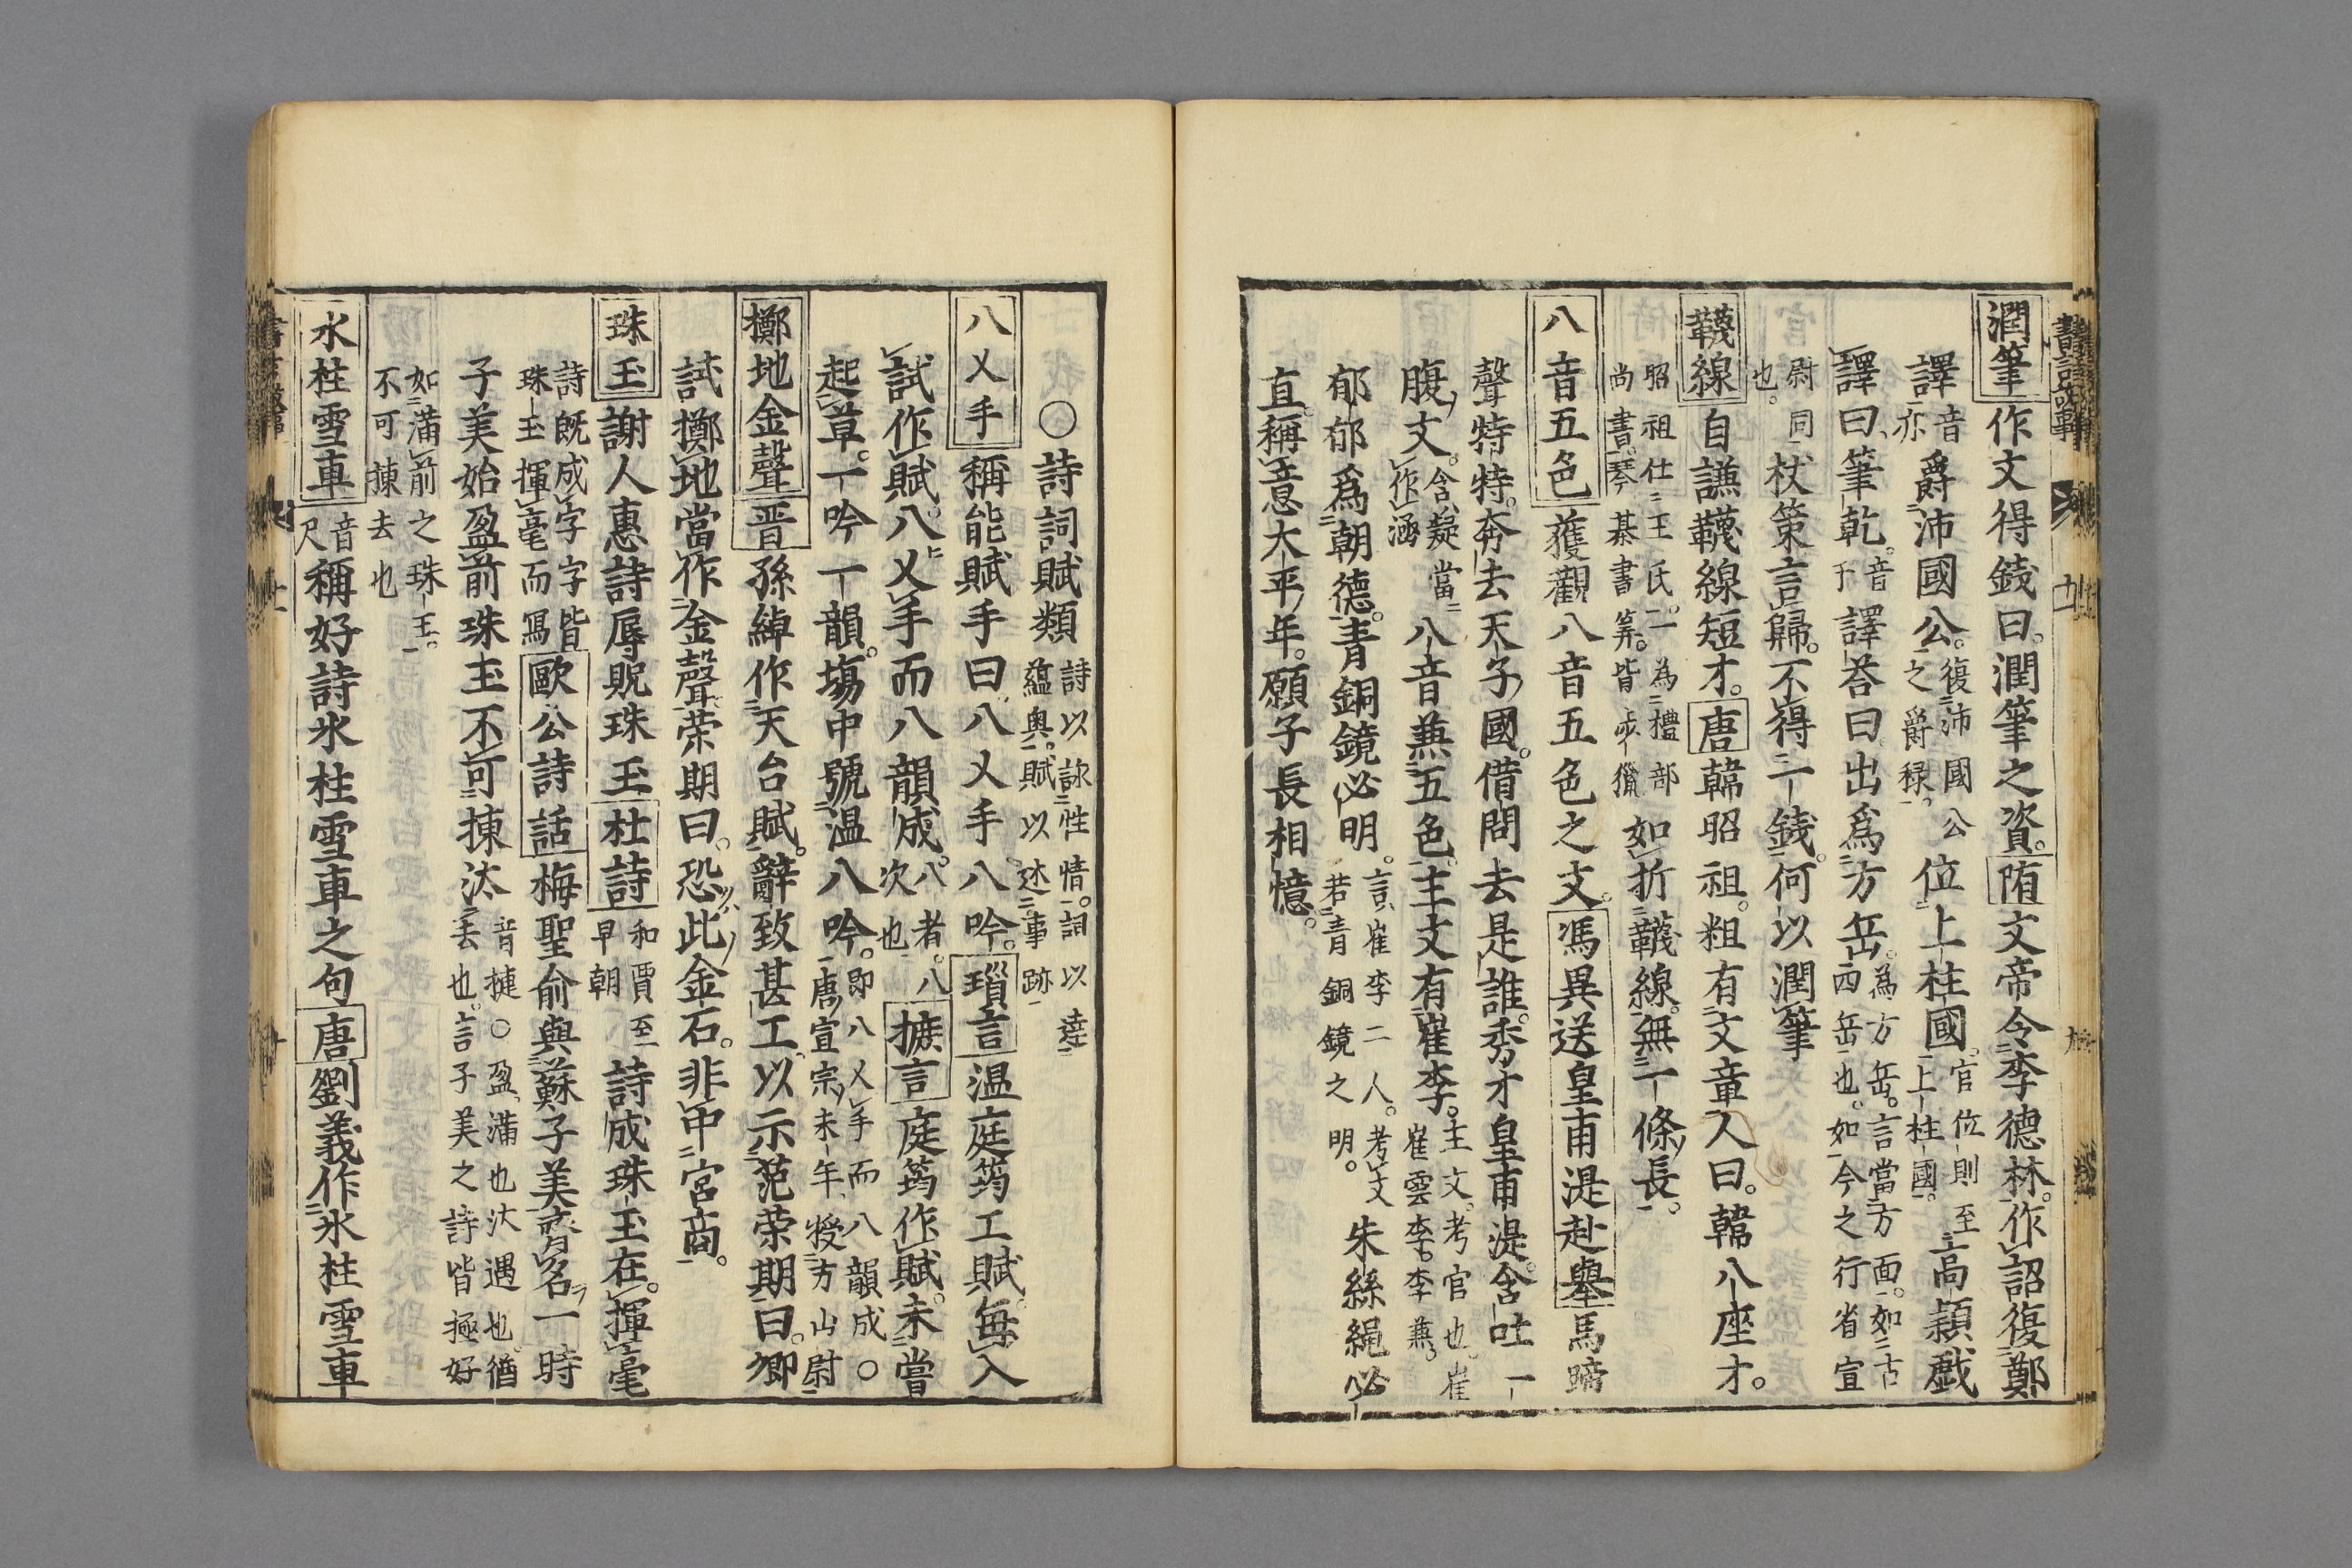 潤筆作文得錢曰潤筆之資隋文帝令李德林作詔復鄭
譯音亦爵沛國公復沛國公之爵禄位上柱國官位則至上柱國高熲戯
譯曰筆乾音干譯荅曰出爲方岳為方岳言當方面如古西岳也如今之行省宣
尉同也杖策言歸不得一錢何以潤筆
韈線自謙韈線短才唐韓昭祖粗有文章入曰韓八座才
昭祖仕王氏為禮部尚書琴棊書筭皆歩獵如折韈線無一條長
八音五色獲觀八音五色之文馮異送皇甫湜赴舉馬蹄
聲特特奔去天子國借問去是誰秀才皇甫湜含吐一
腹文含凝當作涵八音兼五色主文有崔李主文考官也崔崔雲李李兼
郁郁爲朝德青銅鏡必明言崔李二人考文若青銅鏡之明朱絲繩必
直稱意太平年願子長相憶
○詩詞賦類詩以詠性情詞以達蘊奥賦以述事跡
八乂手稱能賦手曰八乂手八吟瑣言温庭筠工賦每入
試作賦八乂手而八韻成八者八次也摭言庭筠作賦未嘗
起草一吟一韻場中號温八吟即八乂手而八韻成○唐宣宗末年授方山尉
擲地金聲晋孫綽作天台賦辭致甚工以示范荣期曰卿
試擲地當作金聲荣期曰恐此金石非中宮商
珠玉謝人惠詩辱貺珠玉杜詩和賈至早朝詩成珠玉在揮毫
詩既成字字皆珠玉揮毫而寫歐公詩話梅聖俞與蘇子美齊名一時
子美始盈前珠玉不可揀汰音揵○盈滿也汰過也猶去也言子美之詩皆極好
如滿前之珠玉不可揀去也
氷柱雪車音尺稱好詩氷柱雪車之句唐劉義作氷柱雪車